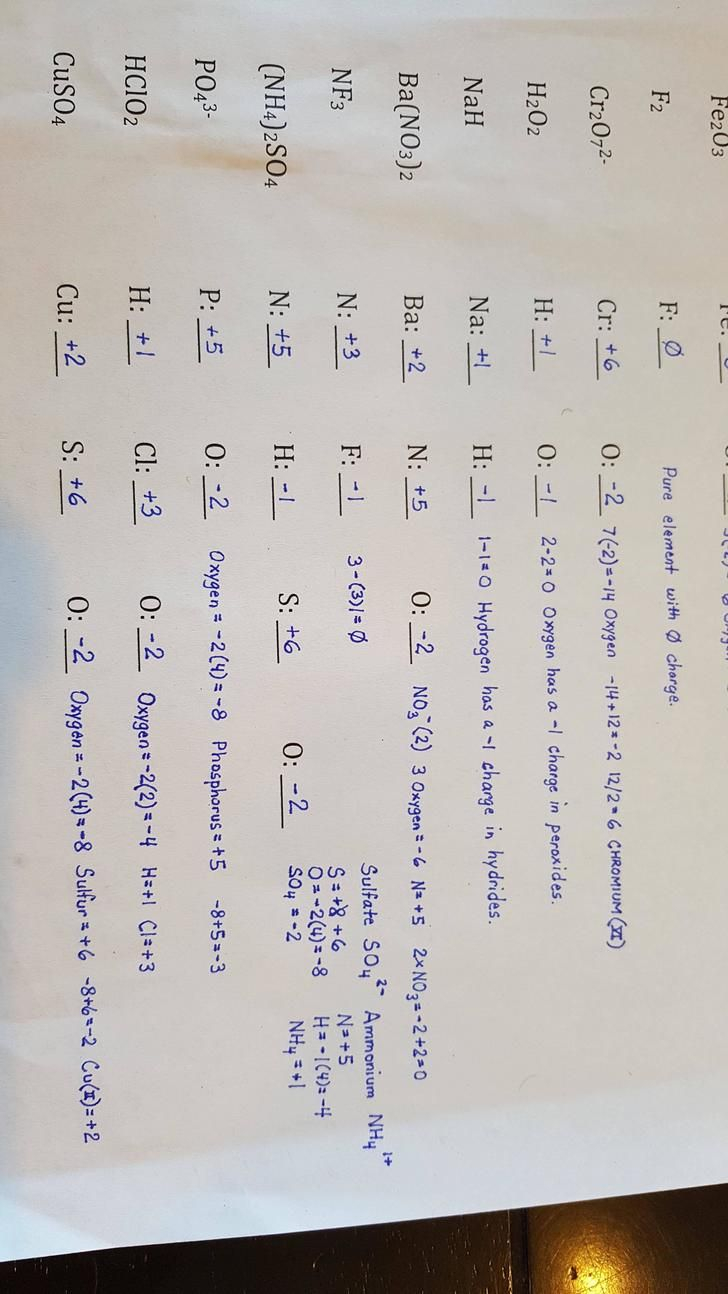 Fe₂O₃
F₂ F: Ø Pure element with Ø charge.
Cr₂O₇²⁻ Cr: +6 O: -2 7(-2)=-14 Oxygen -14+12=-2 12/2=6 CHROMIUM (VI)
H₂O₂ H: +1 O: -1 2-2=0 Oxygen has a -1 charge in peroxides.
NaH Na: +1 H: -1 1-1=0 Hydrogen has a -1 charge in hydrides.
Ba(NO₃)₂ Ba: +2 N: +5 O: -2 NO₃⁻(2) 3 Oxygen=-6 N=+5 2xNO₃=-2+2=0
NF₃ N: +3 F: -1 3-(3)1=Ø
(NH₄)₂SO₄ N: +5 H: -1 S: +6 O: -2
Sulfate SO₄²⁻ Ammonium NH₄¹⁺
S=+6 N=+5
O=-2(4)=-8 H=-1(4)=-4
SO₄=-2 NH₄=+1
PO₄³⁻ P: +5 O: -2 Oxygen=-2(4)=-8 Phosphorus=+5 -8+5=-3
HClO₂ H: +1 Cl: +3 O: -2 Oxygen=-2(2)=-4 H=+1 Cl=+3
CuSO₄ Cu: +2 S: +6 O: -2 Oxygen=-2(4)=-8 Sulfur=+6 -8+6=-2 Cu(II)=+2